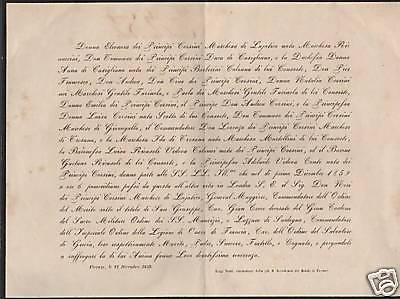 Donna Eleonora dei Principi Corsini Marchesa di Lajatico nata Marchesa Rinuccini,
Don Tommaso dei Principi Corsini Duca di Casigliano, e la Duchessa Donna
Anna di Casigliano nata dei Principi Barberini Colonna di lui Consorte, Don Pier
Francesco, Don Andrea, Don Cino dei Principi Corsini, Donna Natalia Corsini
nei Marchesi Gentile Farinola, e Paolo dei Marchesi Gentili Farinola di lei Consorte,
Donna Emilia dei Principi Corsini, il Principe Don Andrea Corsini, e la Principessa
Donna Luisa Corsini nata Scotto di lui Consorte, Don Tommaso dei Principi Corsini
Marchese di Giovagallo, il Commendatore Don Lorenzo dei Principi Corsini Marchese di
Tresana, e la Marchesa Ida di Tresana nata Marchesa di lui Consorte,
la Baronessa Luisa Ricasoli vedova Colonna nata dei Principi Corsini, ed il Barone
Gaetano Ricasoli di lei Consorte, e la Principessa Adelaide Vedova Conti nata dei
Principi Corsini, danno parte alle SS. LL. Ill. che nel dì primo Dicembre 1859
a ore 6 pomeridiane passò da questa all'altra vita in Londra S. E. il Sig. Don Neri
dei Principi Corsini Marchese di Lajatico, General Maggiore, Commendatore dell'Ordine
del Merito sotto il titolo di San Giuseppe, Cav. Gran Croce decorato del Gran Cordone
del Sacro Militare Ordine dei SS. Maurizio, e Lazzaro di Sardegna, Commendatore
dell'Imperiale Ordine della Legione di Onore di Francia, Cav. dell'Ordine del Salvatore
di Grecia, loro respettivamente Marito, Padre, Suocero, Fratello, e Cognato, e pregandoli
a suffragare la di lui Anima fanno Loro devotissima reverenza.
Firenze, li 12 Dicembre 1859.